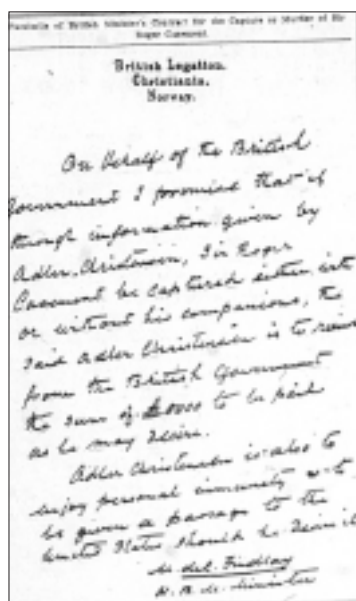 Facsimile of British Minister's Contract for the Capture or Murder of Sir
Roger Casement.
British Legation,
Christiania,
Norway.
On behalf of the British
Government I promised that if
through information given by
Adler Christensen, Sir Roger
Casement be captured either with
or without his companions, the
said Adler Christensen is to receive
from the British Government
the sum of £5000 to be paid
as he may desire.
Adler Christensen is also to
enjoy personal immunity & to
be given a passage to the
United States should he desire it
M. deC. Findlay
H. B. M. Minister